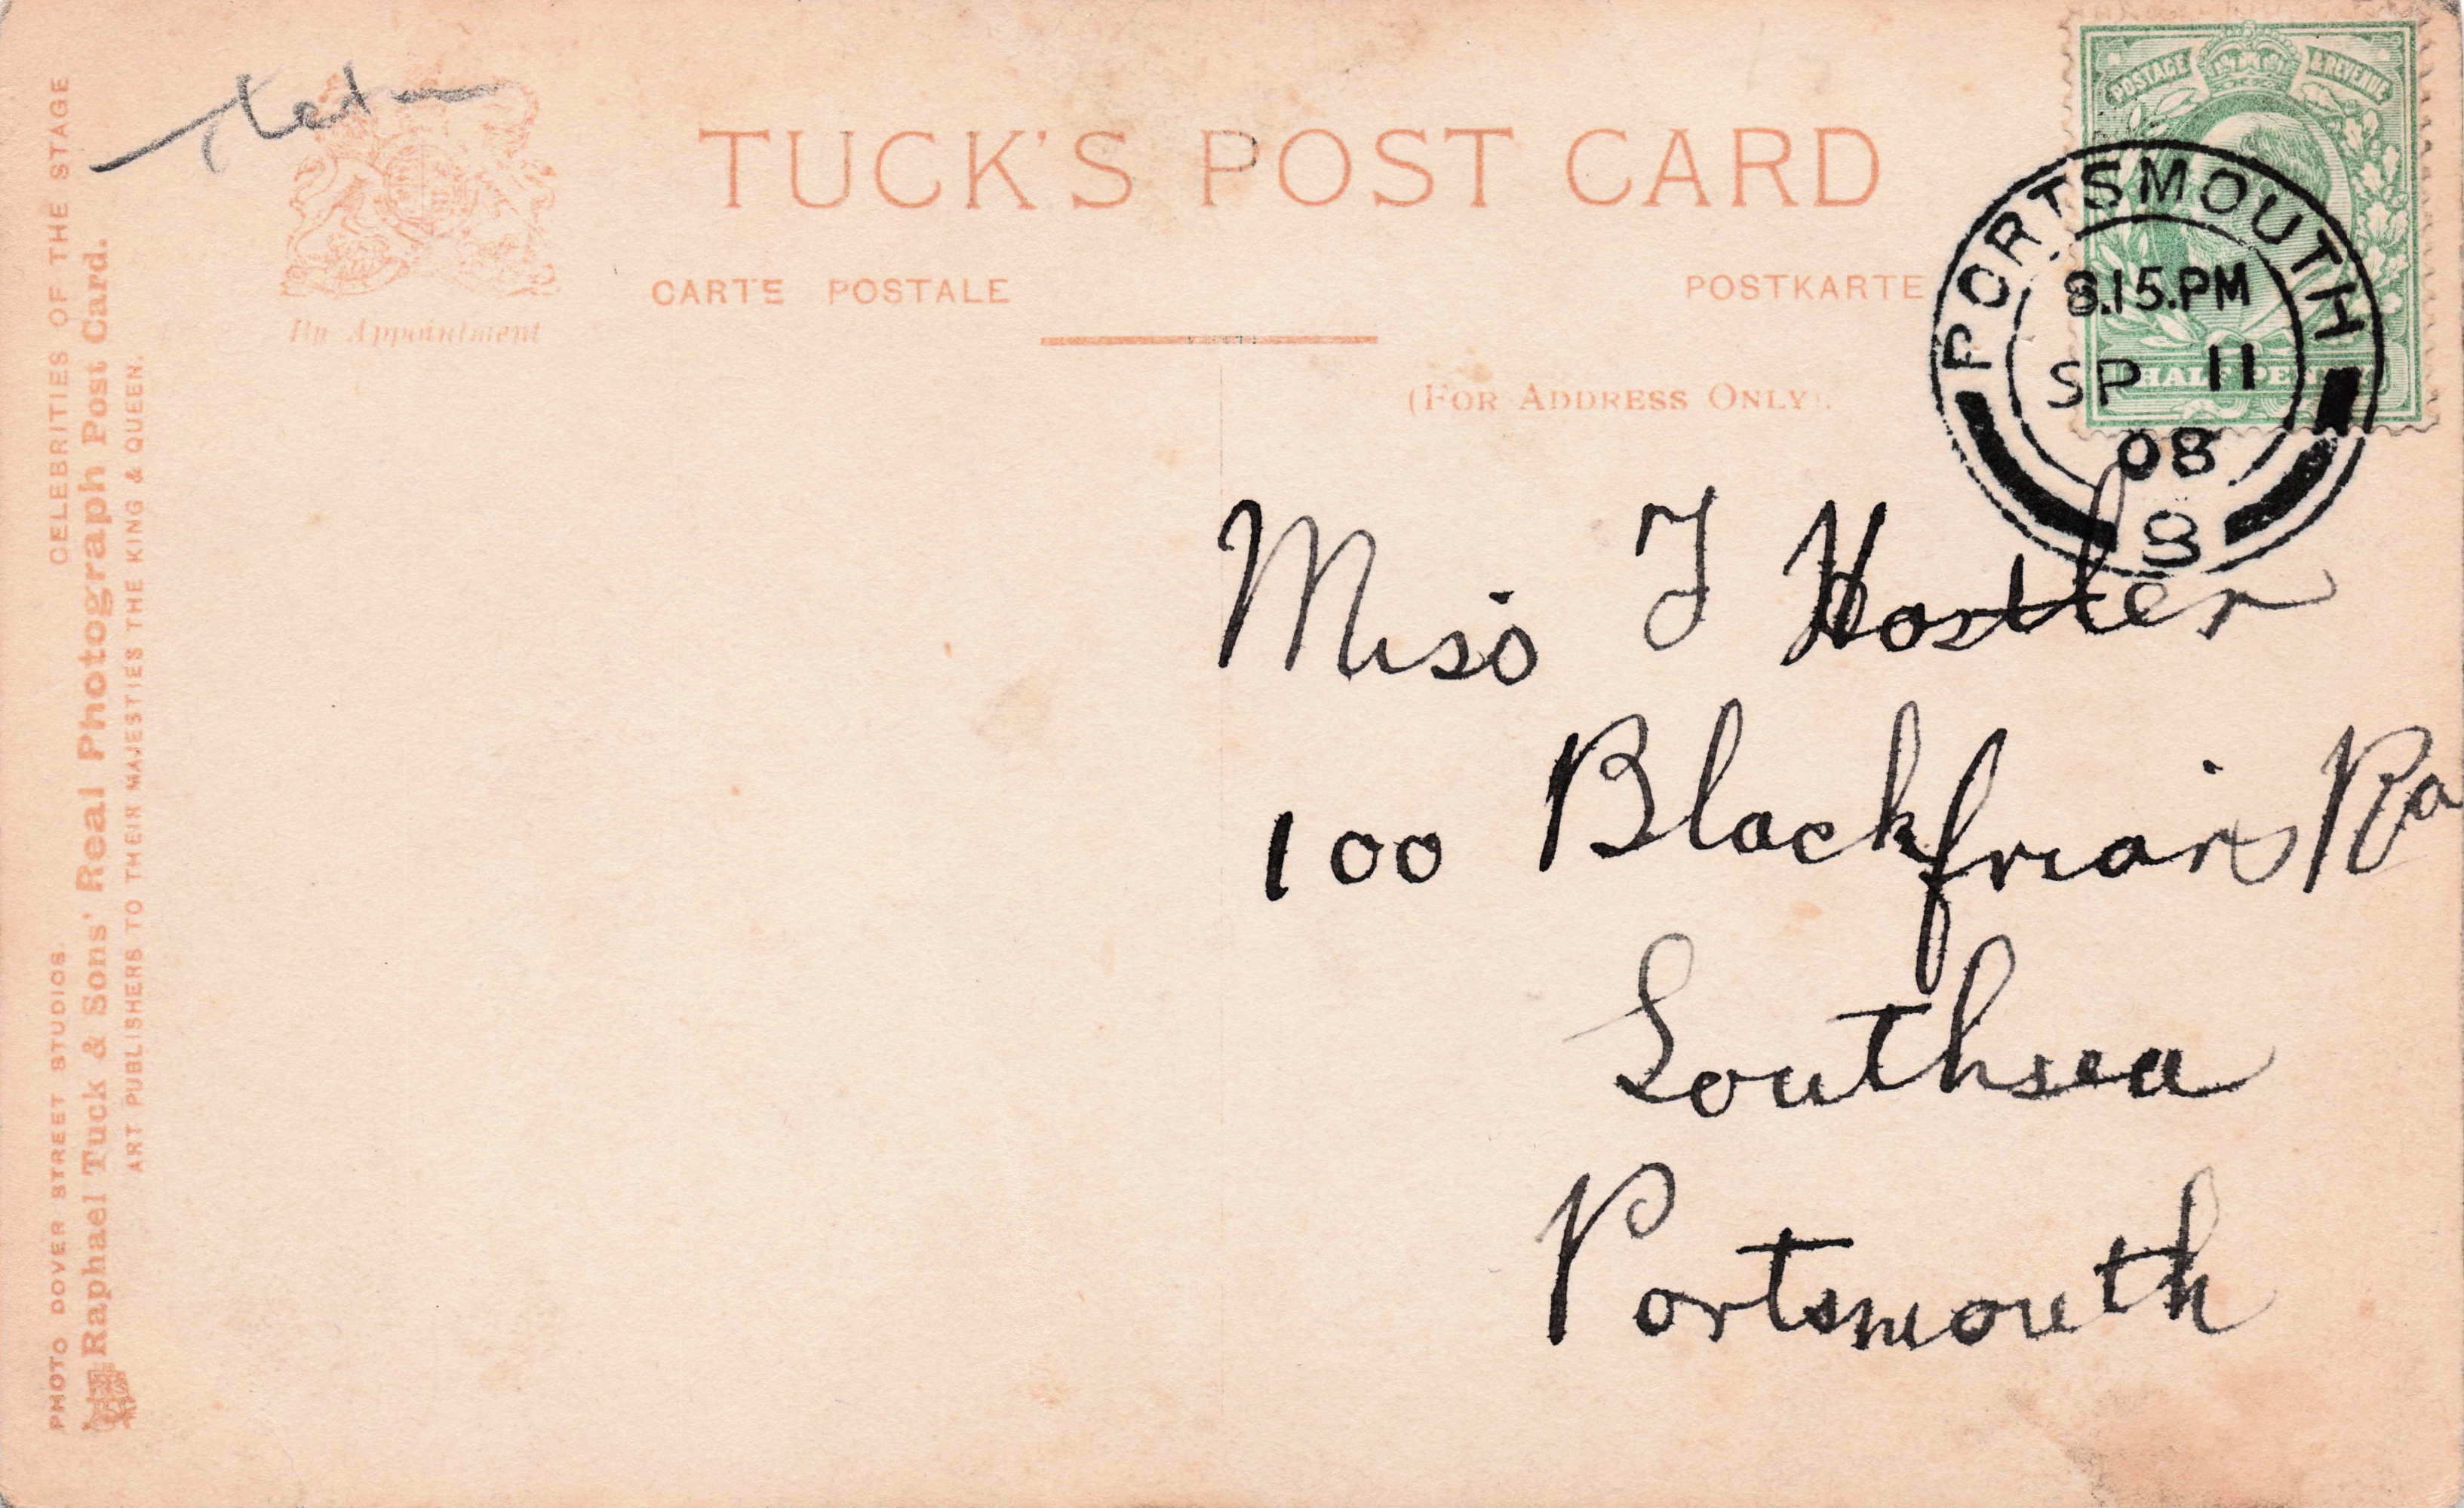 TUCK'S POST CARD
CARTE POSTALE
POSTKARTE
(FOR ADDRESS ONLY).
By Appointment
POSTAGE & REVENUE
HALF PENNY
PORTSMOUTH
8.15.PM
SP 11
08
S
Miss T Hostler
100 Blackfriars Ro
Southsea
Portsmouth
PHOTO DOVER STREET STUDIOS. CELEBRITIES OF THE STAGE
Raphael Tuck & Sons' Real Photograph Post Card.
ART PUBLISHERS TO THEIR MAJESTIES THE KING & QUEEN.